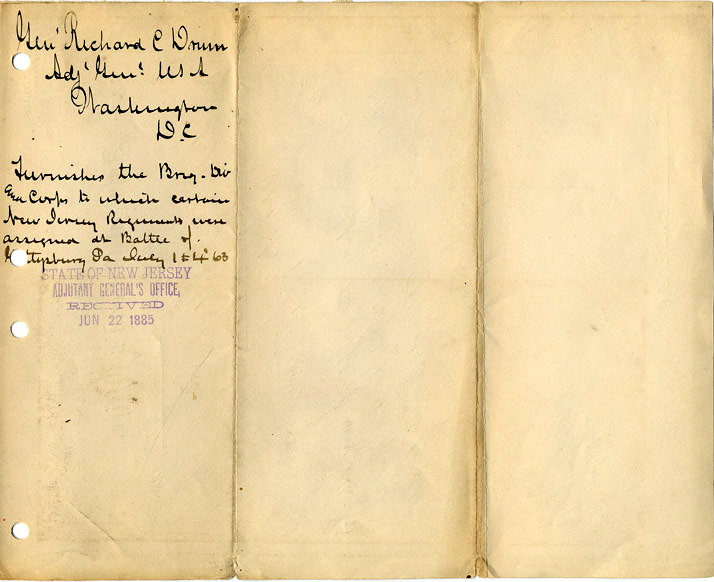 Gen'l Richard C Drum
Adj't Gen'l US A
Washington
D.C
Furnishes the Brig. Div
and Corps to which certain
New Jersey Regiments were
assigned at Battle of
Gettysburg Pa July 1 to 4 '63
STATE OF NEW JERSEY
ADJUTANT GENERAL'S OFFICE,
RECEIVED
JUN 22 1885